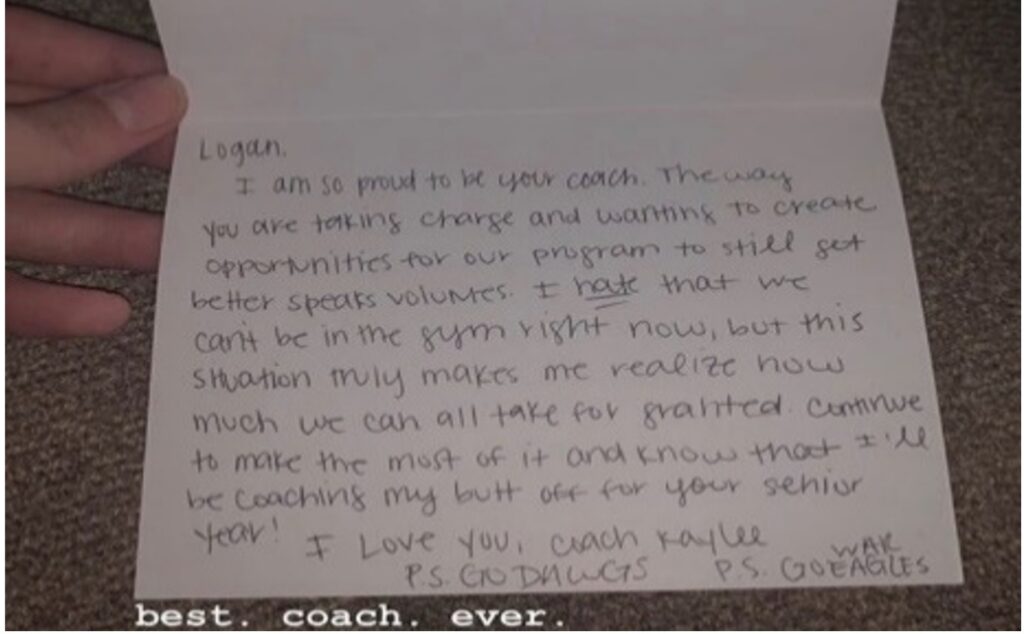 Logan,
I am so proud to be your coach. The way
you are taking charge and wanting to create
opportunities for our program to still get
better speaks volumes. I hate that we
can't be in the gym right now, but this
situation truly makes me realize how
much we can all take for granted. Continue
to make the most of it and know that I'll
be coaching my butt off for your senior
year!
I Love you, Coach Kaylee
P.S. GO DAWGS
P.S. GO WAR EAGLES
best. coach. ever.